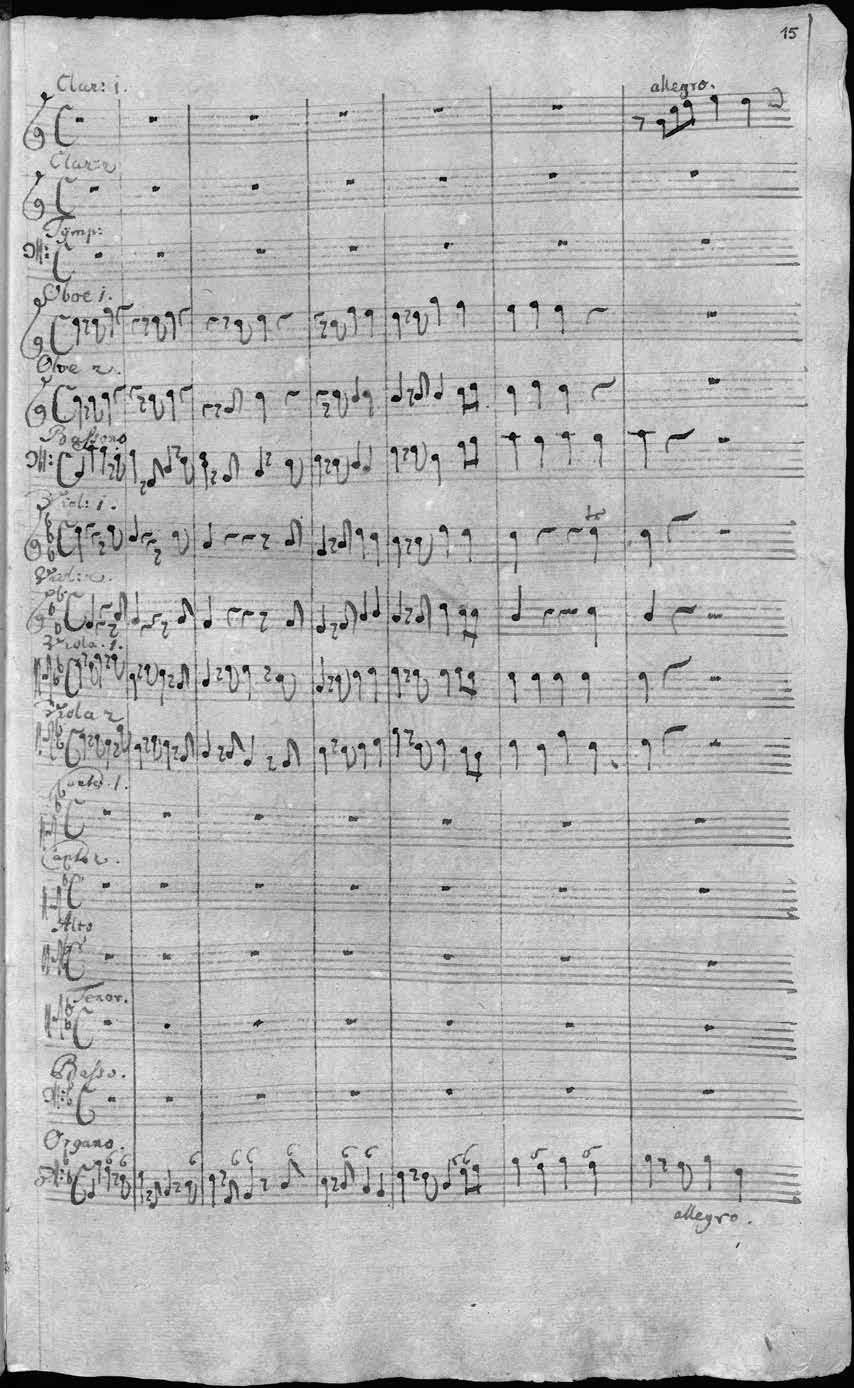 15
Clar: 1.
allegro.
Clar: 2
Tymp:
Oboe 1.
Oboe 2.
Bassono
Viol: 1.
Viol: 2.
Viola. 1.
Viola 2
Canto. 1.
Canto 2.
Alto
Tenor.
Basso.
Organo.
6 6 6 6 6 6 6 6 5 6 5 6
allegro.